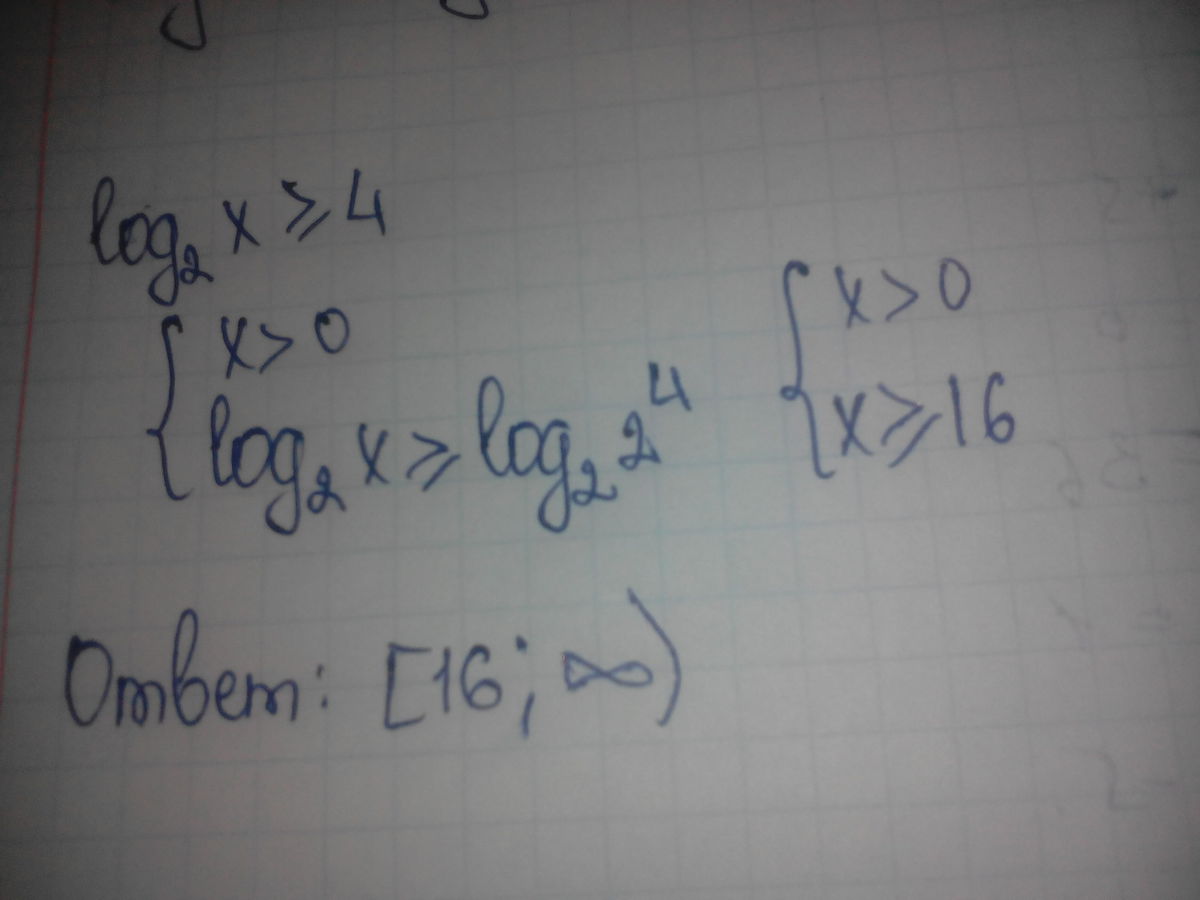 log₂ x ⩾ 4
{ x > 0
log₂ x ⩾ log₂ 2⁴
{ x > 0
x ⩾ 16
Ответ: [16; ∞)